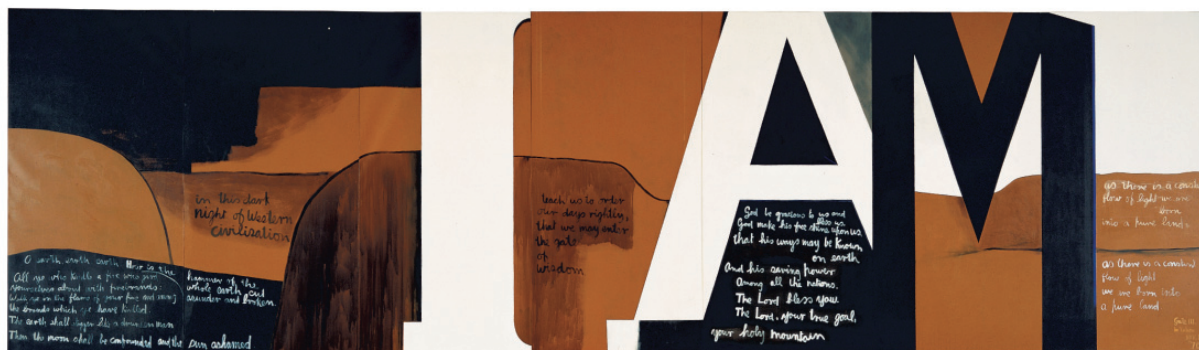 I AM
in this dark
night of Western
civilisation
O earth earth earth How is the
hammer of the
whole earth cut
asunder and broken.
All ye who kindle a fire who gird
yourselves about with firebrands:
Walk ye in the flame of your fire and among
the brands which ye have kindled.
The earth shall stagger like a drunken man
Then the moon shall be confounded and the sun ashamed
teach us to order
our days rightly,
that we may enter
the gate
of
wisdom
God be gracious to us and
bless us
God make his face shine upon us
that his ways may be known
on earth
And his saving power
Among all the nations.
The Lord bless you
The Lord, your true goal,
your holy mountain
as there is a constant
flow of light we are
born
into a pure land.
as there is a constant
flow of light
we are born into
a pure land.